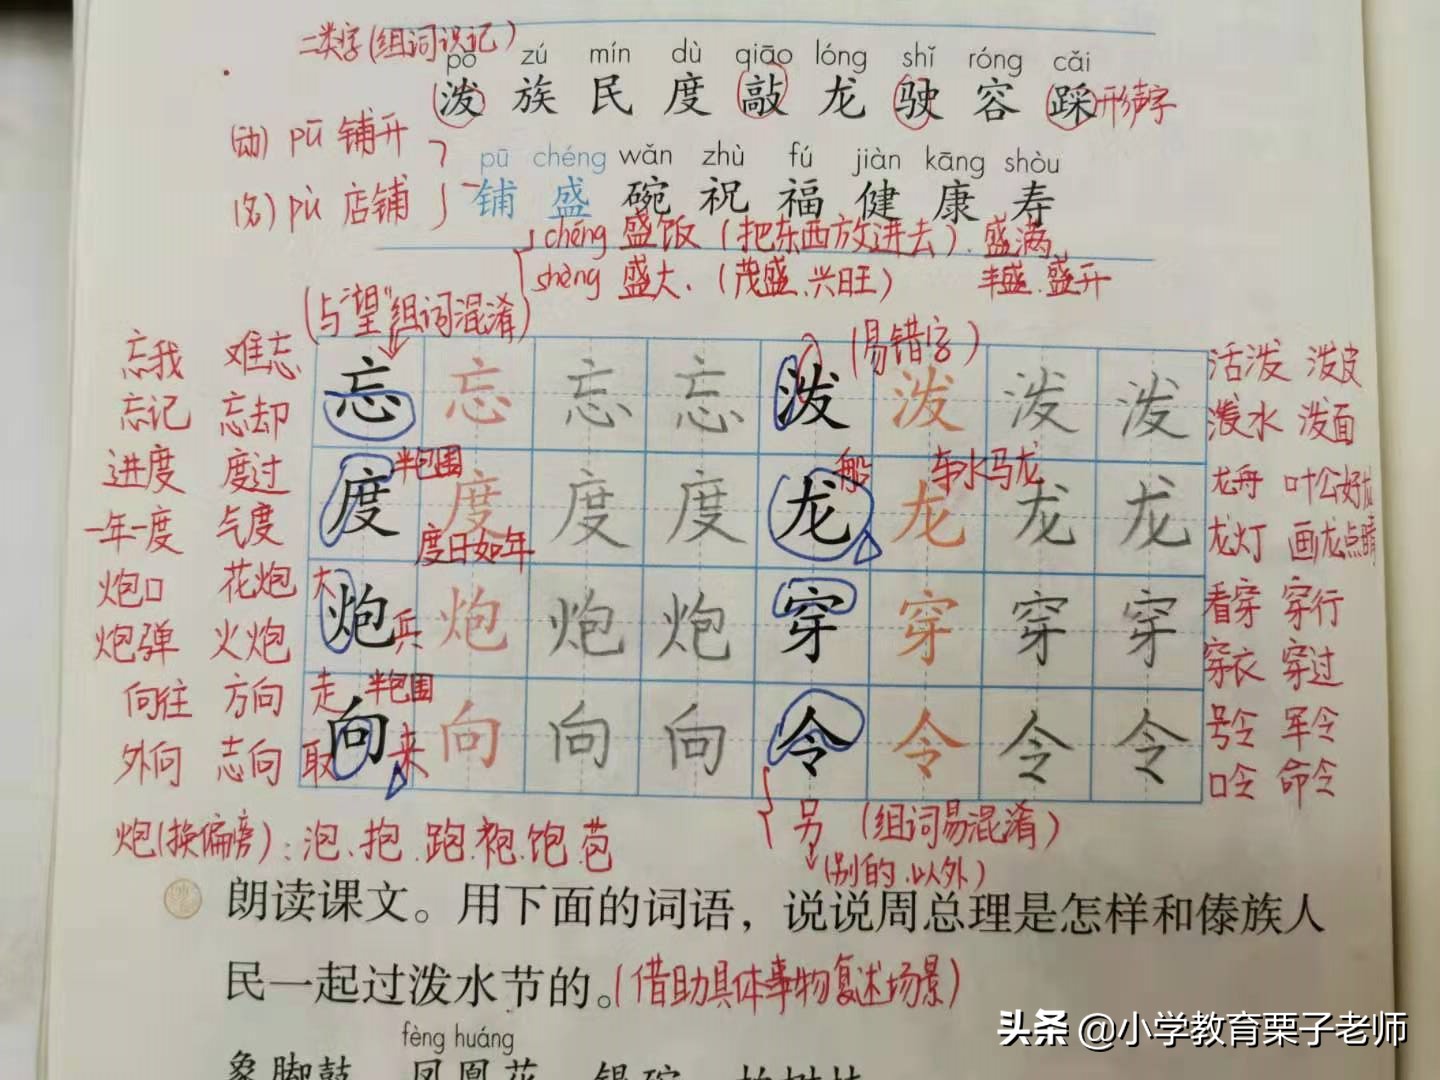 二类字(组词识记)
pō zú mín dù qiāo lóng shǐ róng cǎi
泼 族 民 度 敲 龙 驶 容 踩 形声字
(动) pū 铺开
pū chéng wǎn zhù fú jiàn kāng shòu
(名) pù 店铺 铺 盛 碗 祝 福 健 康 寿
chéng 盛饭(把东西放进去). 盛满
shèng 盛大.(茂盛、兴旺) 丰盛.盛开
(与"望"组词混淆)
(易错字)
忘我 难忘 忘 忘 忘 忘 泼 泼 泼 泼 活泼 泼皮
忘记 忘却 泼水 泼面
进度 度过 半包围 般 车水马龙 龙舟 叶公好龙
度 度 度 度 龙 龙 龙 龙
一年一度 气度 度日如年 龙灯 画龙点睛
炮口 花炮 大 看穿 穿行
炮 兵 炮 炮 炮 穿 穿 穿 穿
炮弹 火炮 穿衣 穿过
向往 方向 走 半包围 号令 军令
向 向 向 向 令 令 令 令
外向 志向 取 来 口令 命令
另 (组词易混淆)
炮(换偏旁):泡、抱.跑.袍.饱.苞
(别的.以外)
朗读课文。用下面的词语，说说周总理是怎样和傣族人
民一起过泼水节的。(借助具体事物复述场景)
fèng huáng
象脚鼓 凤凰花 银碗 柏树枝
头条 @小学教育栗子老师